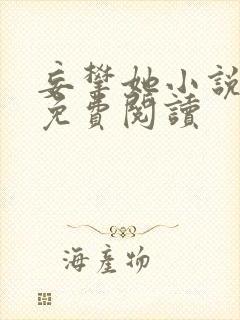 妄攀她小說
免費閱讀
海產物